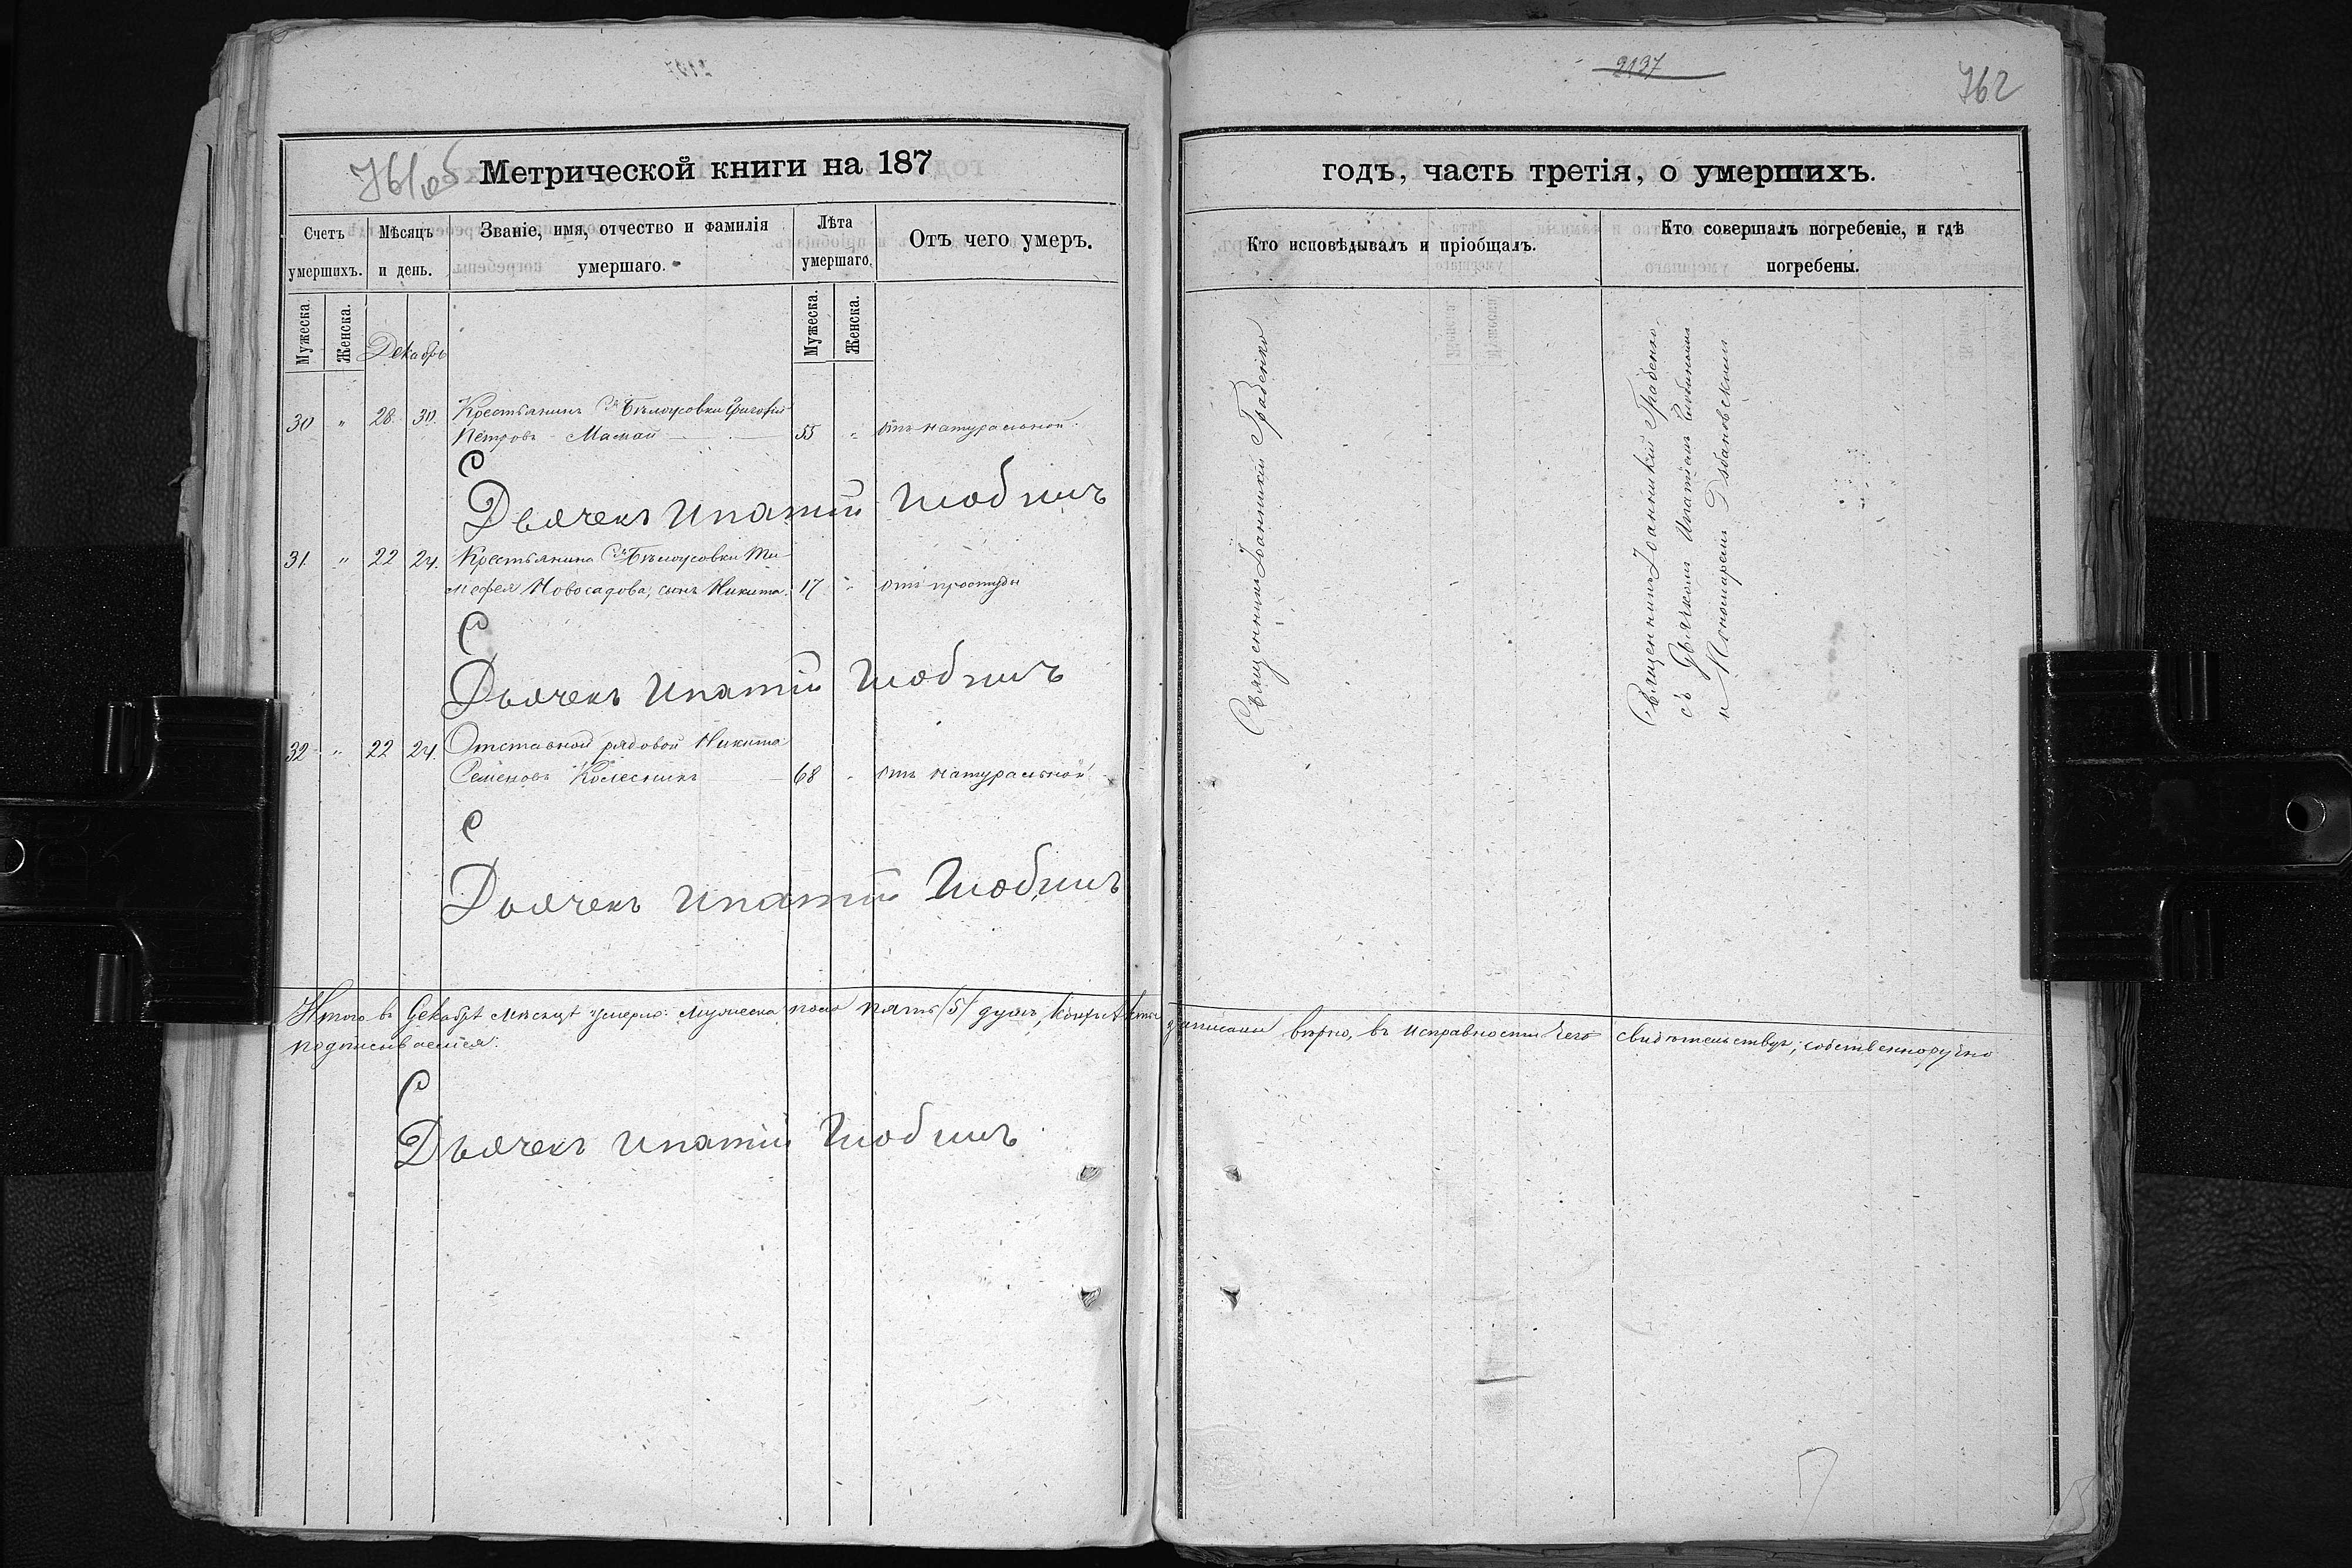 2137
762
761 об
Метрической книги на 187
годъ, часть третія, о умершихъ.
Счетъ умершихъ.
Мѣсяцъ и день.
Званіе, имя, отчество и фамилія умершаго.
Лѣта умершаго.
Отъ чего умеръ.
Кто исповѣдывалъ и пріобщалъ.
Кто совершалъ погребеніе, и гдѣ погребены.
Мужеска.
Женска.
Мужеска.
Женска.
Декабрь
30 " 28. 30. Крестьянинъ Сл. Бѣлоусовки Григорій
Петровъ Мамай 55 " отъ натуральной
С
Дьячекъ Ипатій
31. " 22 24. Крестьянина Сл. Бѣлоусовки Ти-
мофея Новосадова, сынъ Никита. 17 " отъ простуды
С
Дьячекъ Ипатій
32 " 22 24. Отставной рядовой Никита
Семеновъ Колесникъ 68 " отъ натуральной
С
Дьячекъ Ипатій
Итого въ Декабрѣ мѣсяцѣ умерло: мужеска пола пять /5/ душъ, записаны вѣрно, въ исправности чего свидѣтельствуя, собственноручно
подписываемся:
С
Дьячекъ Ипатій
Священникъ Іоанникій Грабенко
Священникъ Іоанникій Грабенко
съ Дьячкомъ Ипатіемъ
и Пономаремъ